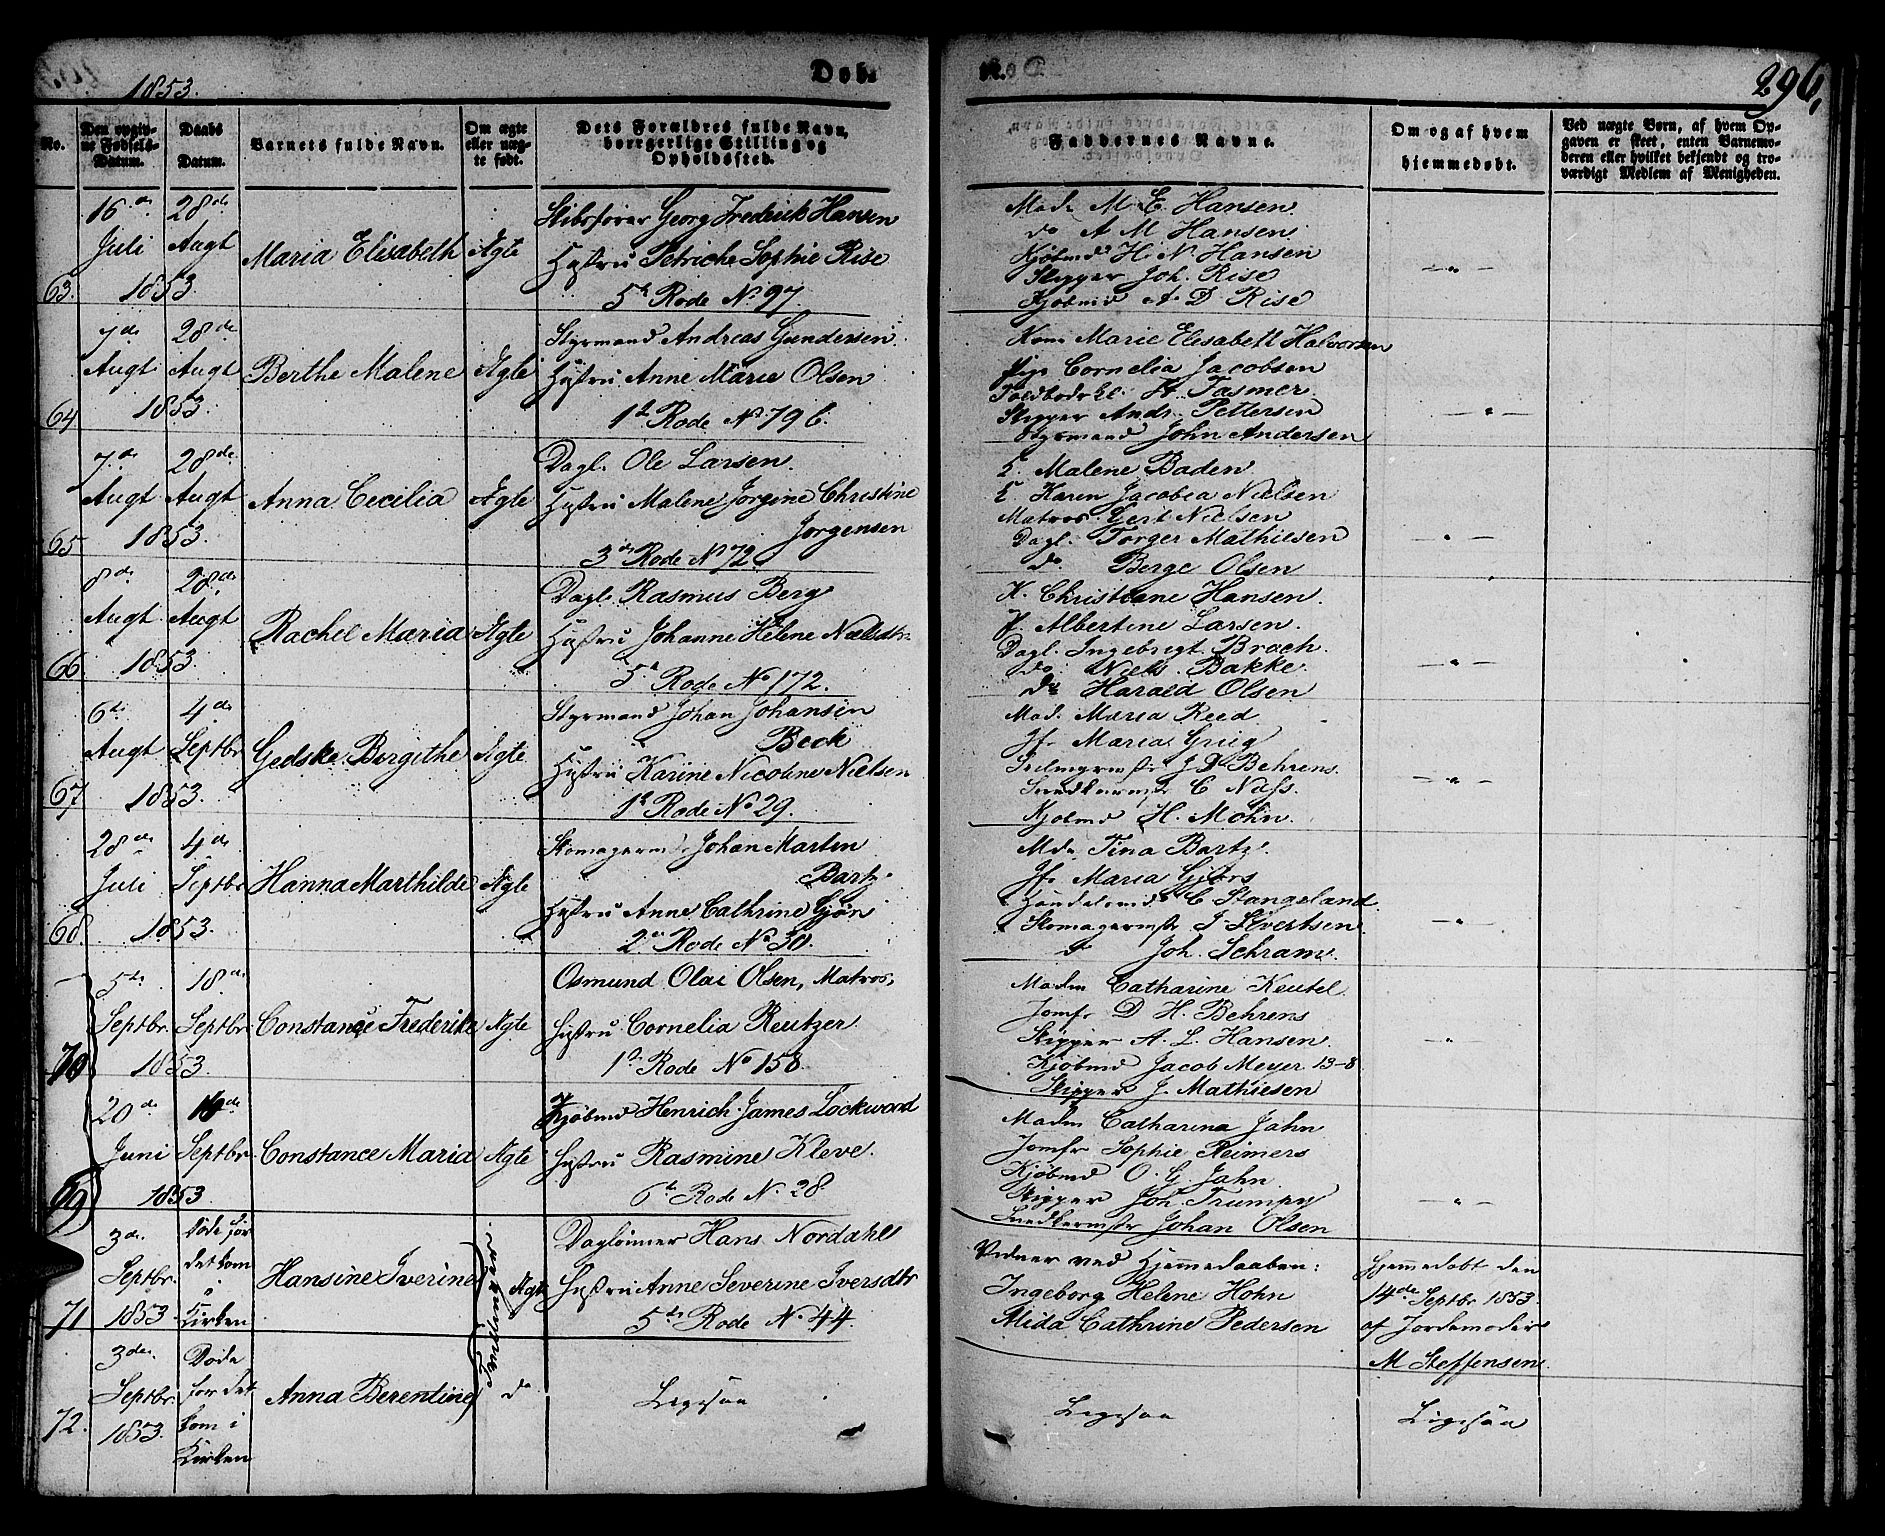 1853.
Døbte.
296,
No.
Den opgivne Fødsels-Datum.
Daabs Datum.
Barnets fulde Navn.
Om ægte eller uægte født.
Dets Forældres fulde Navn, borgerlige Stilling og Opholdssted.
Faddernes Navne.
Om og af hvem hjemmedøbt.
Ved uægte Børn, af hvem Opgaven er skeet, enten Barnemoderen eller hvilket bekjendt og troværdigt Medlem af Menigheden.
63.
16de Juli 1853
28de Augt
Maria Elisabeth
Ægte
Skibsfører Georg Fredrick Hansen
Hustru Petriche Sophie Rise
5te Rode No 97
Mad. M E. Hansen.
do A M Hansen
Kjøbmd H. N. Hansen
Skipper Joh. Rise
Kjøbmd A. D Rise
— " —
64
7de Augt 1853.
28de Augt
Berthe Malene
Ægte
Styrmand Andreas Gundersen
Hustru Anne Marie Olsen
1te Rode No 796.
Kone Marie Elisabeth Halvorsen
Pige Cornelia Jacobsen
H. Fasmer.
Skipper Andr. Pettersen
Styrmand John Andersen
— " —
65
7de Augt 1853.
28de Augt
Anna Cecilia
Ægte
Dagl. Ole Larsen.
Hustru Malene Jørgine Christine
Jørgensen
3de Rode No 72.
K. Malene Baden
K. Karen Jacobea Nielsen
Matros. Gert Nielsen
Dagl. Torger Mathiesen
do Berge Olsen
— " —
66
8de Augt 1853.
28de Augt
Rachel Maria
Ægte
Dagl. Rasmus Berg
Hustru Johanne Helene Nielsdtr
5te Rode No 172.
K. Christiane Hansen.
P. Albertine Larsen.
Dagl. Ingebrigt Broch.
do Niels Bakke.
do Harald Olsen
— " —
67
6te Augt 1853.
4de Septbr
Gedske Bergithe
Ægte
Styrmand Johan Johansen
Beck
Hustru Karine Nicoline Nielsen
1te Rode No 29.
Mad. Maria Reed
Jfr Maria Grieg
J D Behrens.
Snedkermstr C Nass.
Kjøbmd H. Mohn.
— " —
68.
28de Juli 1853.
4de Septbr
Hanna Marthilde
Ægte
Skomagermstr Johan Marten
Bartz.
Hustru Anne Cathrine Gjørs
2den Rode No 30.
Mdm Tina Bartz.
Jfr Maria Gjørs
Handelsmd C Stangeland.
Skomagermstr J Sivertsen
do Joh. Schram.
"
70
5te Septbr 1853.
18de Septbr
Constance Frederike
Ægte
Osmund Olai Olsen, Matros,
Hustru Cornelia Reutzer.
1te Rode No 158.
Madm Catharine Keutel.
Jomfr D. H. Behrens
Skipper A. L. Hansen.
Kjøbmd Jacob Meyer 13-8
Skipper J. Mathiesen
"
69
20de Juni 1853
Septbr
Constance Maria
Ægte
Kjøbmd Henrich James Lockwood
Hustru Rasmine Kleve.
6te Rode No 28
Madm Catharina Jahn
Jomfr Sophie Reimers
Kjøbmd O. G Jahn.
Skipper Joh. Trumpy
Snedkermstr Johan Olsen
— " —
71
3de Septbr 1853.
Døde før det kom i Kirken
Hansine Iverine
Tvillinger
Ægte
Dagløinner Hans Nordahl
Hustru Anne Severine Iversdtr
5te Rode No 44
Vidner ved Hjemmedaaben:
Ingeborg Helene Hohn
Alida Cathrine Pedersen
Hjemmedøbt den
14de Septbr 1853.
af Jordemoder
M Steffensen.
72.
3de Septbr. 1853.
Døde før det kom i Kirken
Anna Berentine
do
Ligesaa
Ligesaa
Ligesaa